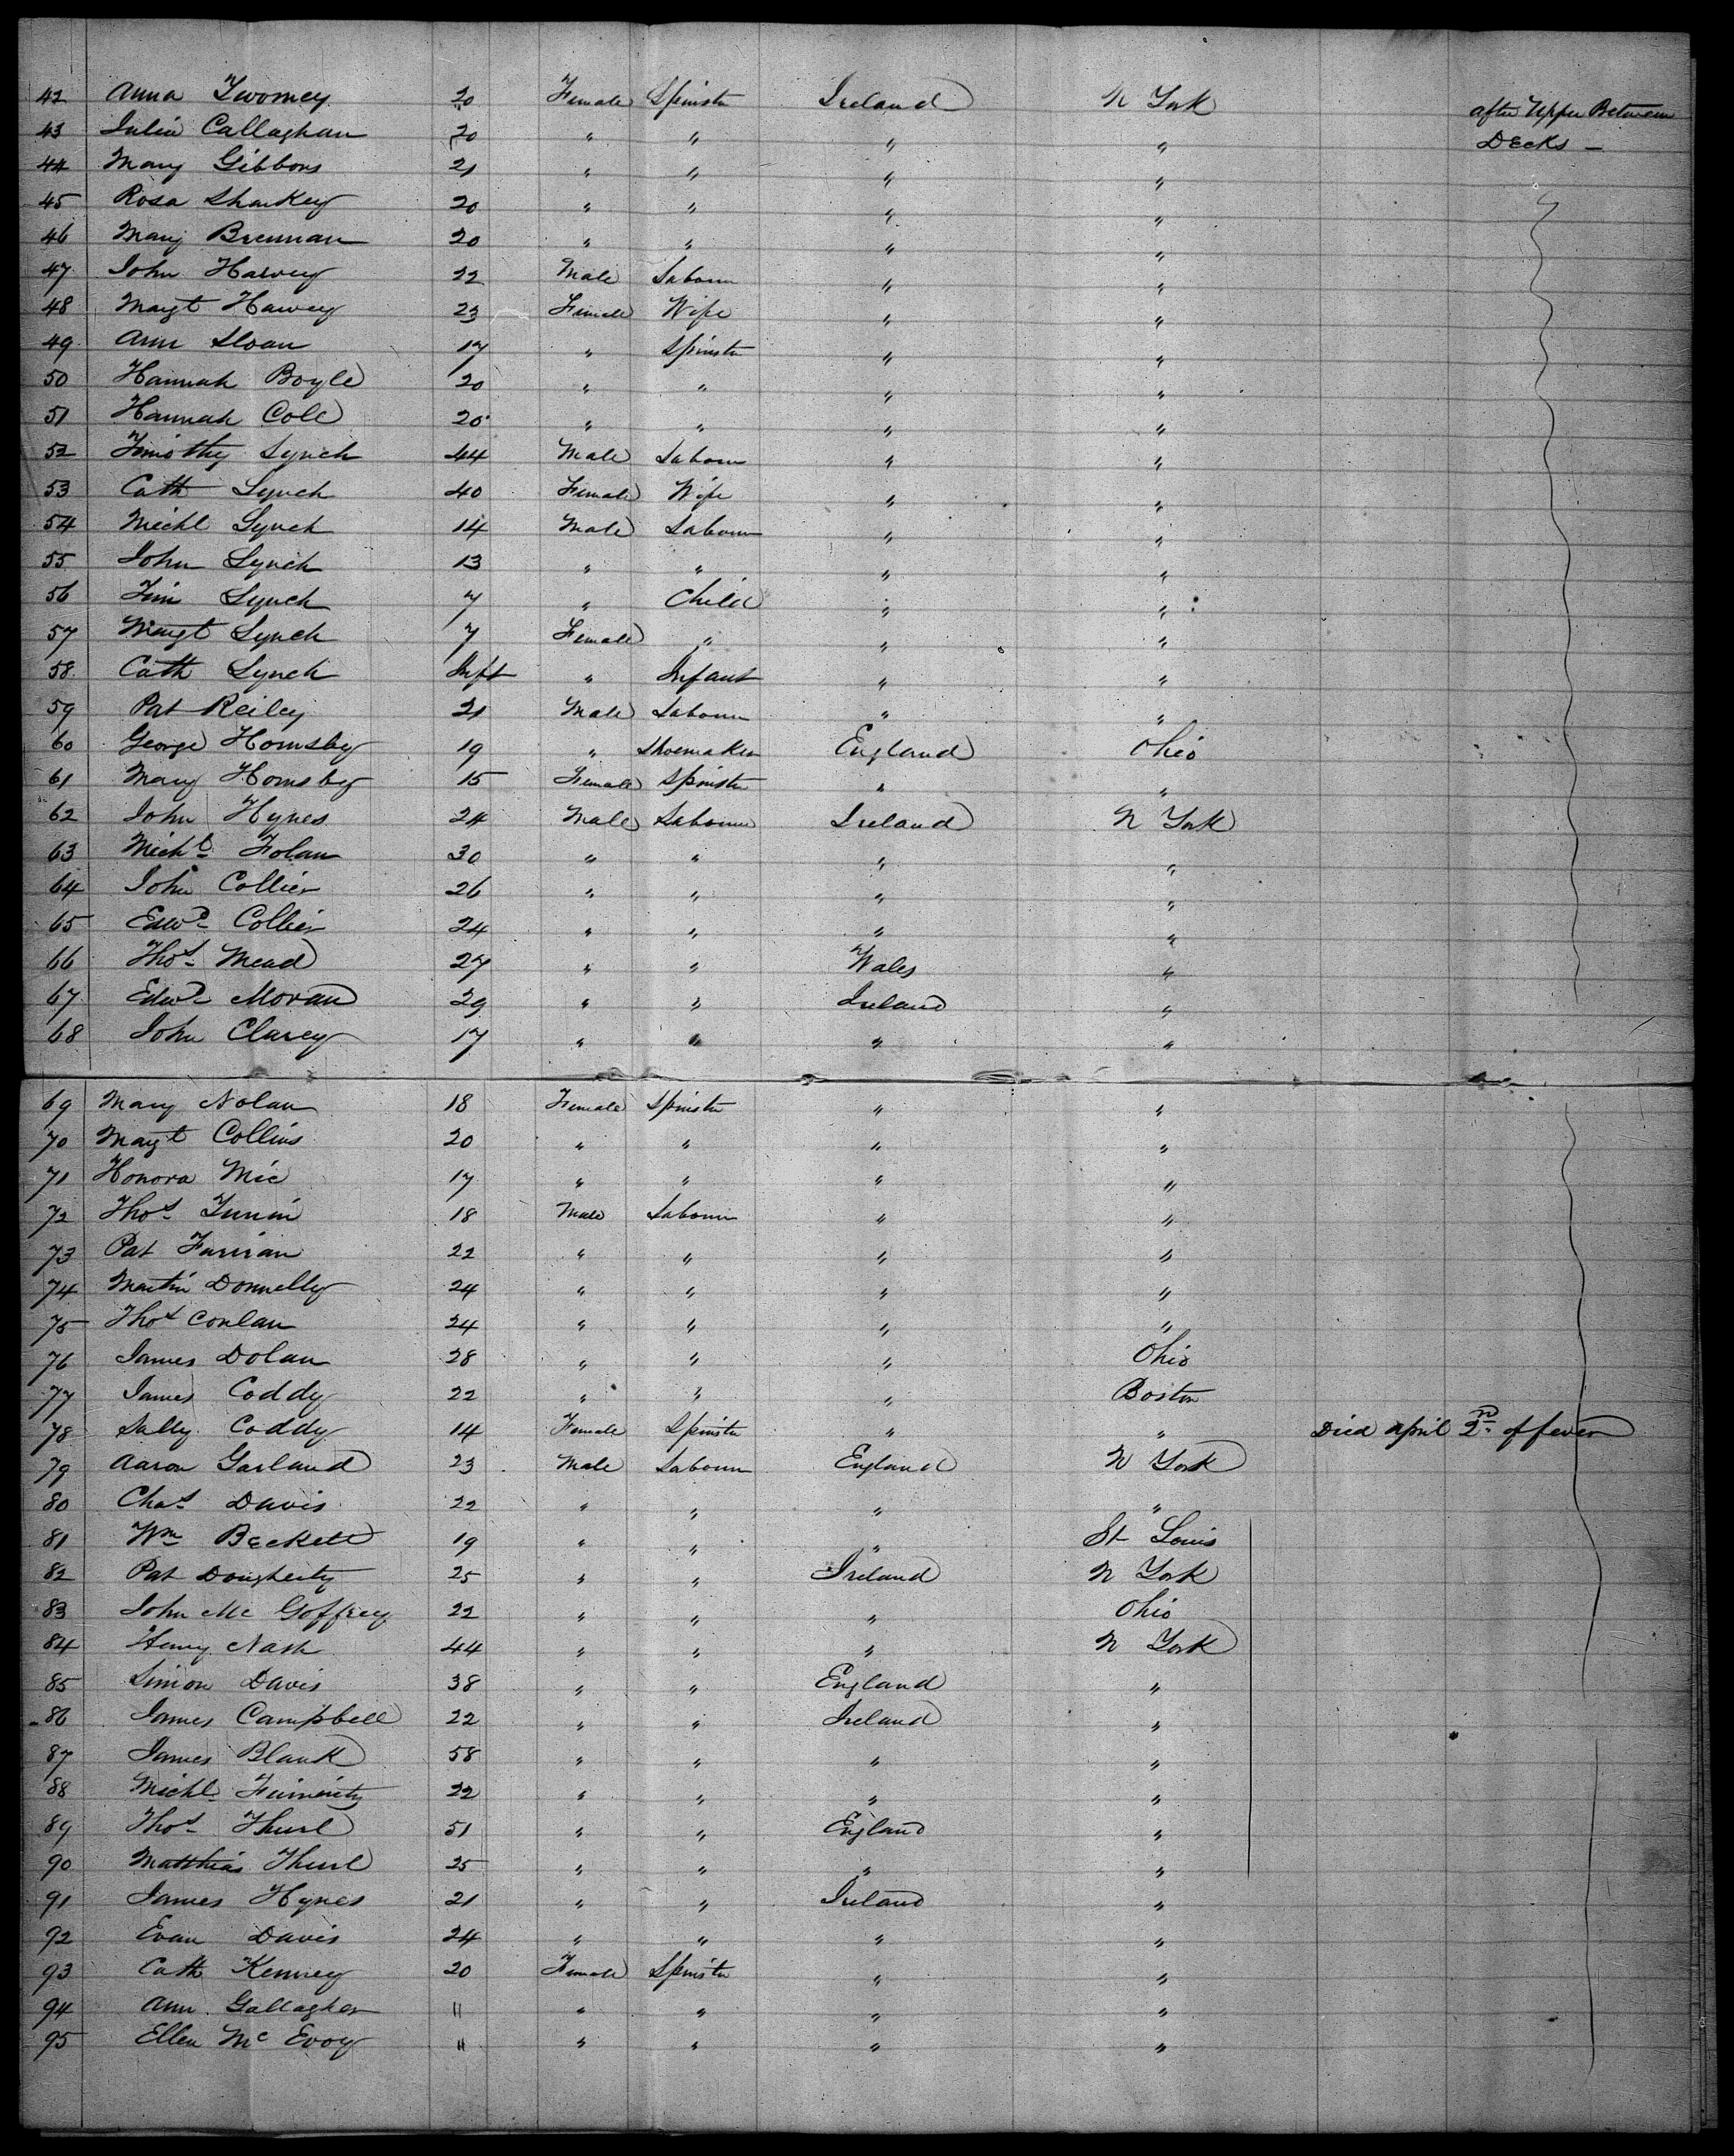 42 Anna Twomey 20 Female Spinstr Ireland N York After Upper Between
43 Julia Callaghan 20 " " " " Decks –
44 Mary Gibbons 21 " " " "
45 Rosa Sharkey 20 " " " "
46 Mary Brennan 20 " " " "
47 John Harvey 22 Male Labour " "
48 Margt Harvey 23 Female Wife " "
49 Ann Sloan 17 " Spinstr " "
50 Hannah Boyle 20 " " " "
51 Hannah Cole 20 " " " "
52 Timothy Lynch 44 Male Labour " "
53 Cath Lynch 40 Female Wife " "
54 Michl Lynch 14 Male Labour " "
55 John Lynch 13 " " " "
56 Tim Lynch 7 " Child " "
57 Margt Lynch 7 Female " " "
58 Cath Lynch Inft " Infant " "
59 Pat Reiley 21 Male Labour " "
60 George Hornsby 19 " Shoemaker England Ohio
61 Mary Hornsby 15 Female Spinstr " "
62 John Hynes 24 Male Labour Ireland N York
63 Michl Folan 30 " " " "
64 John Collier 26 " " " "
65 Edwd Collier 24 " " " "
66 Thos Mead 27 " " Wales "
67 Edwd Moran 29 " " Ireland "
68 John Clarey 17 " " " "
69 Mary Nolan 18 Female Spinstr " "
70 Margt Collins 20 " " " "
71 Honora Mic 17 " " " "
72 Thos 18 Male Labour " "
73 Pat 22 " " " "
74 Martin Donnelly 24 " " " "
75 Thos Conlan 24 " " " "
76 James Dolan 28 " " " Ohio
77 James Coddy 22 " " " Boston
78 Sally Coddy 14 Female Spinstr " " Died April 2nd of fever
79 Aaron Garland 23 Male Labour England N York
80 Chas Davis 22 " " " "
81 Wm Beckett 19 " " " St Louis
82 Pat Dougherty 25 " " Ireland N York
83 John Mc Goffrey 22 " " " Ohio
84 Henry Nash 44 " " " N York
85 Simon Davis 38 " " England "
86 James Campbell 22 " " Ireland "
87 James Blank 58 " " " "
88 Michl 22 " " " "
89 Thos Thurl 51 " " England "
90 Matthias Thurl 25 " " " "
91 James Hynes 21 " " Ireland "
92 Evan Davis 24 " " " "
93 Cath Kenney 20 Female Spinstr " "
94 Ann Gallagher " " " " "
95 Ellen Mc Evoy " " " " "